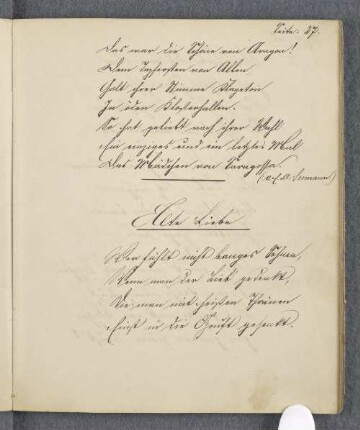 Seite: 27.
Das war die Schöne von Aragon!
Dem Tapfersten von Allen
Galt ihrer Stimme Klageton
In öden Klosterhallen.
So hat geliebt nach ihrer Wahl
Ein einziges und ein letztes Mal
Das Mädchen von Saragossa.
Seemann)
Alte Liebe
Wer fühlt nicht banges Sehnen,
Wenn man der Lieb gedenkt,
Die man mit heißen Thränen
Einst in die Gruft gesenkt.